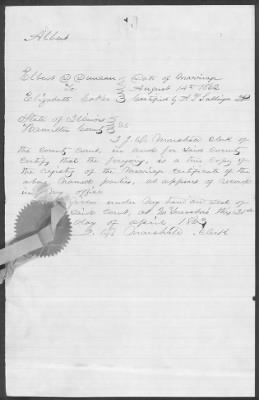 Albert
Elbert D Duncan } Date of Marriage
To } August 14th 1862
Elizabeth } Certified by
State of Illinois } SS
Hamilton County }
I J. W. Marshall Clerk of
the County Court, in and for Said County
Certify, that the foregoing, is a true Copy of
the registry of the Marriage Certificate of the
above named parties, as appears of record
in my office
Given under my hand and Seal of
Said Court, at McLeansboro this
day of April 1863
J. W. Marshall Clerk